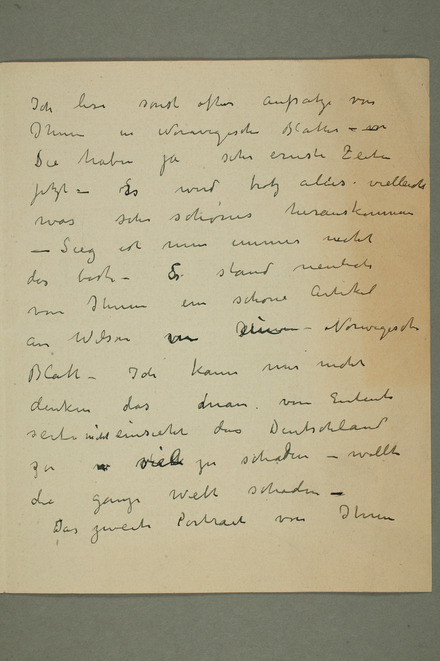 Ich lese sonst öfter Aufsatze von
Ihnen in Norwegische Blatter –
Sie haben ja sehr ernste Zeiten
jetzt – Es wird trotz alles vielleicht
was sehr schönes herauskommen
– Sieg ist nun immer nicht
das beste – Es stand neulich
von Ihnen ein schöne Artikel
an Wilson Norwegische
Blatt – Ich kann mir nicht
denken das man von Entente
seite nicht einsieht das Deutschland
zu viel zu schaden – wollte
die ganze Welt schaden –
Das zweite Portrait von Ihnen